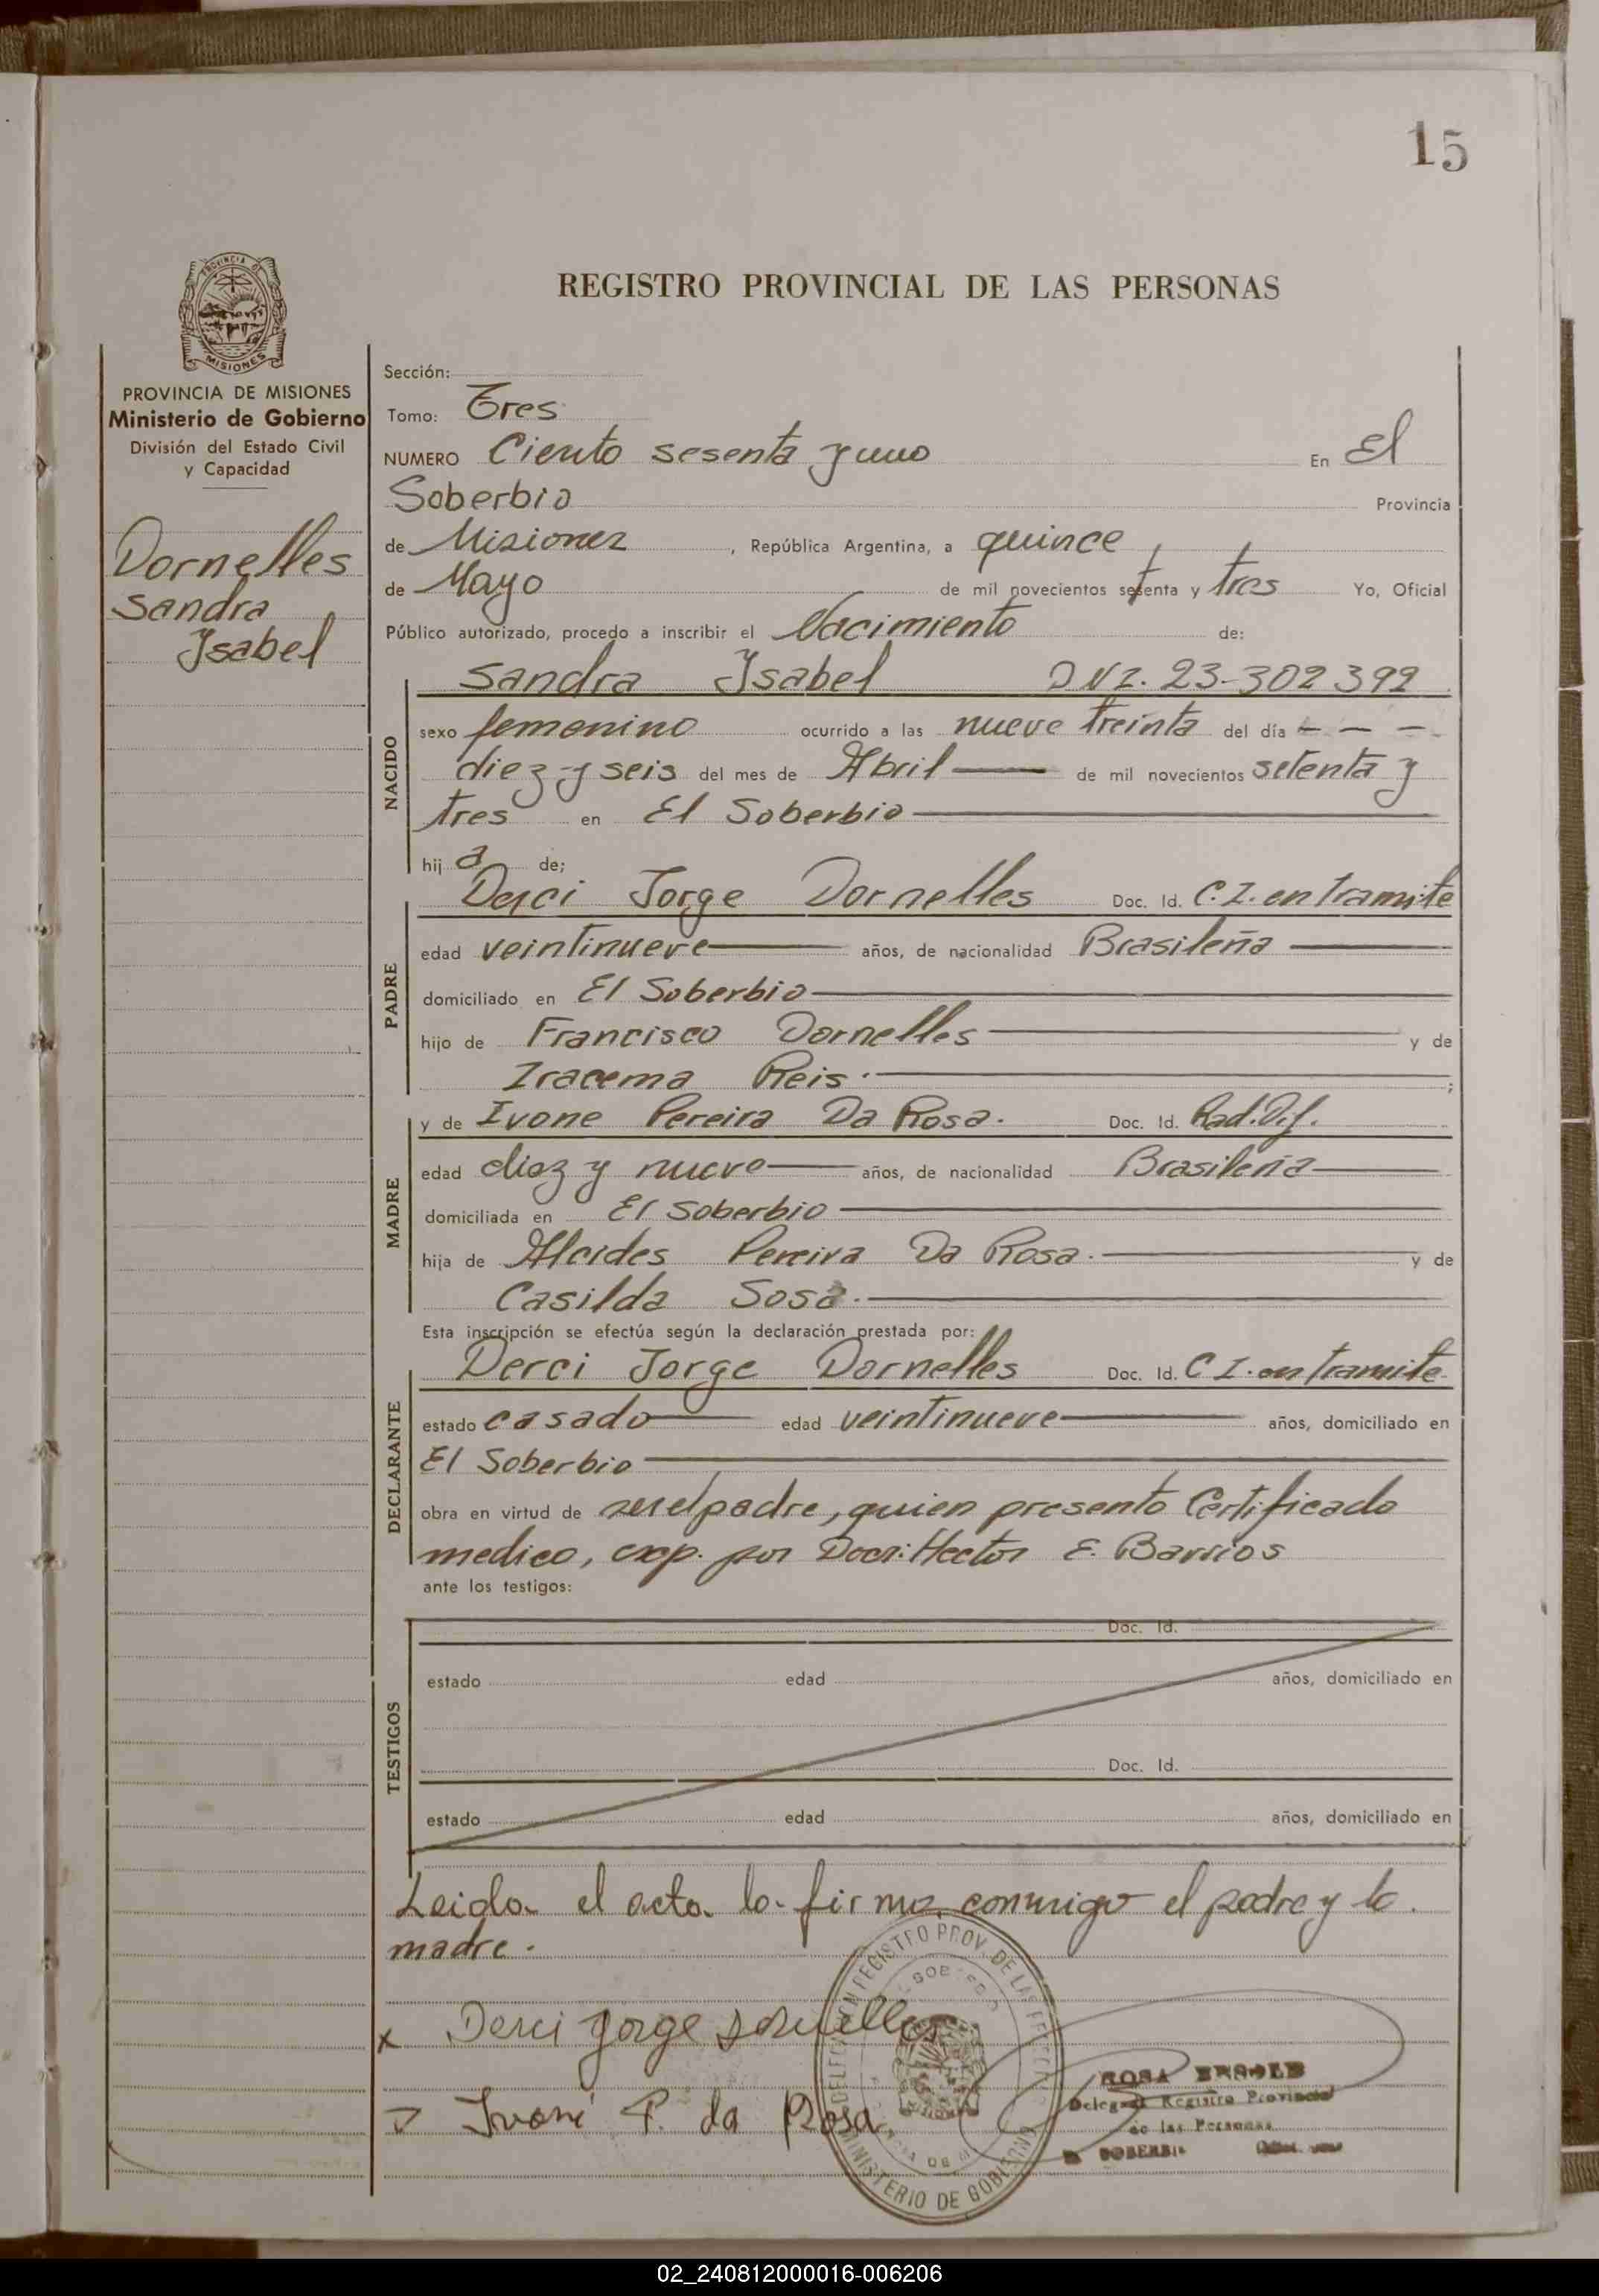 15
REGISTRO PROVINCIAL DE LAS PERSONAS
PROVINCIA DE MISIONES
Ministerio de Gobierno
División del Estado Civil
y Capacidad
Dornelles
Sandra
Ysabel
Sección:
Tomo: Tres
NUMERO Ciento sesenta y uno En El
Soberbio Provincia
de Misiones, República Argentina, a quince
de Mayo de mil novecientos setenta y tres Yo, Oficial
Público autorizado, procedo a inscribir el Nacimiento de:
NACIDO
Sandra Ysabel DNI. 23-302399
sexo femenino ocurrido a las nueve treinta del día - - -
diez y seis del mes de Abril de mil novecientos setenta y
tres en El Soberbio
hija de;
PADRE
Derci Jorge Dornelles Doc. Id. C.I. en tramite
edad veintinueve años, de nacionalidad Brasileña
domiciliado en El Soberbio
hijo de Francisco Dornelles y de
Iracema Reis.;
MADRE
y de Ivone Pereira Da Rosa. Doc. Id. Rad.Dif.
edad diez y nueve años, de nacionalidad Brasileña
domiciliada en El Soberbio
hija de Alcides Pereira Da Rosa. y de
Casilda Sosa.
Esta inscripción se efectúa según la declaración prestada por:
DECLARANTE
Derci Jorge Dornelles Doc. Id. C I. en tramite.
estado casado edad veintinueve años, domiciliado en
El Soberbio
obra en virtud de ser el padre, quien presento Certificado
medico, exp. por Hector E. Barrios
ante los testigos:
TESTIGOS
Doc. Id.
estado edad años, domiciliado en
Doc. Id.
estado edad años, domiciliado en
Leida el acta la firma conmigo el padre y la
madre.
x Derci Jorge Dornelles
Ivone P. da Rosa
REGISTRO PROV. DE LAS
MINISTERIO DE GOBIERNO
ROSA
Registro Provincial
de las Personas
SOBERBIO
02_240812000016-006206